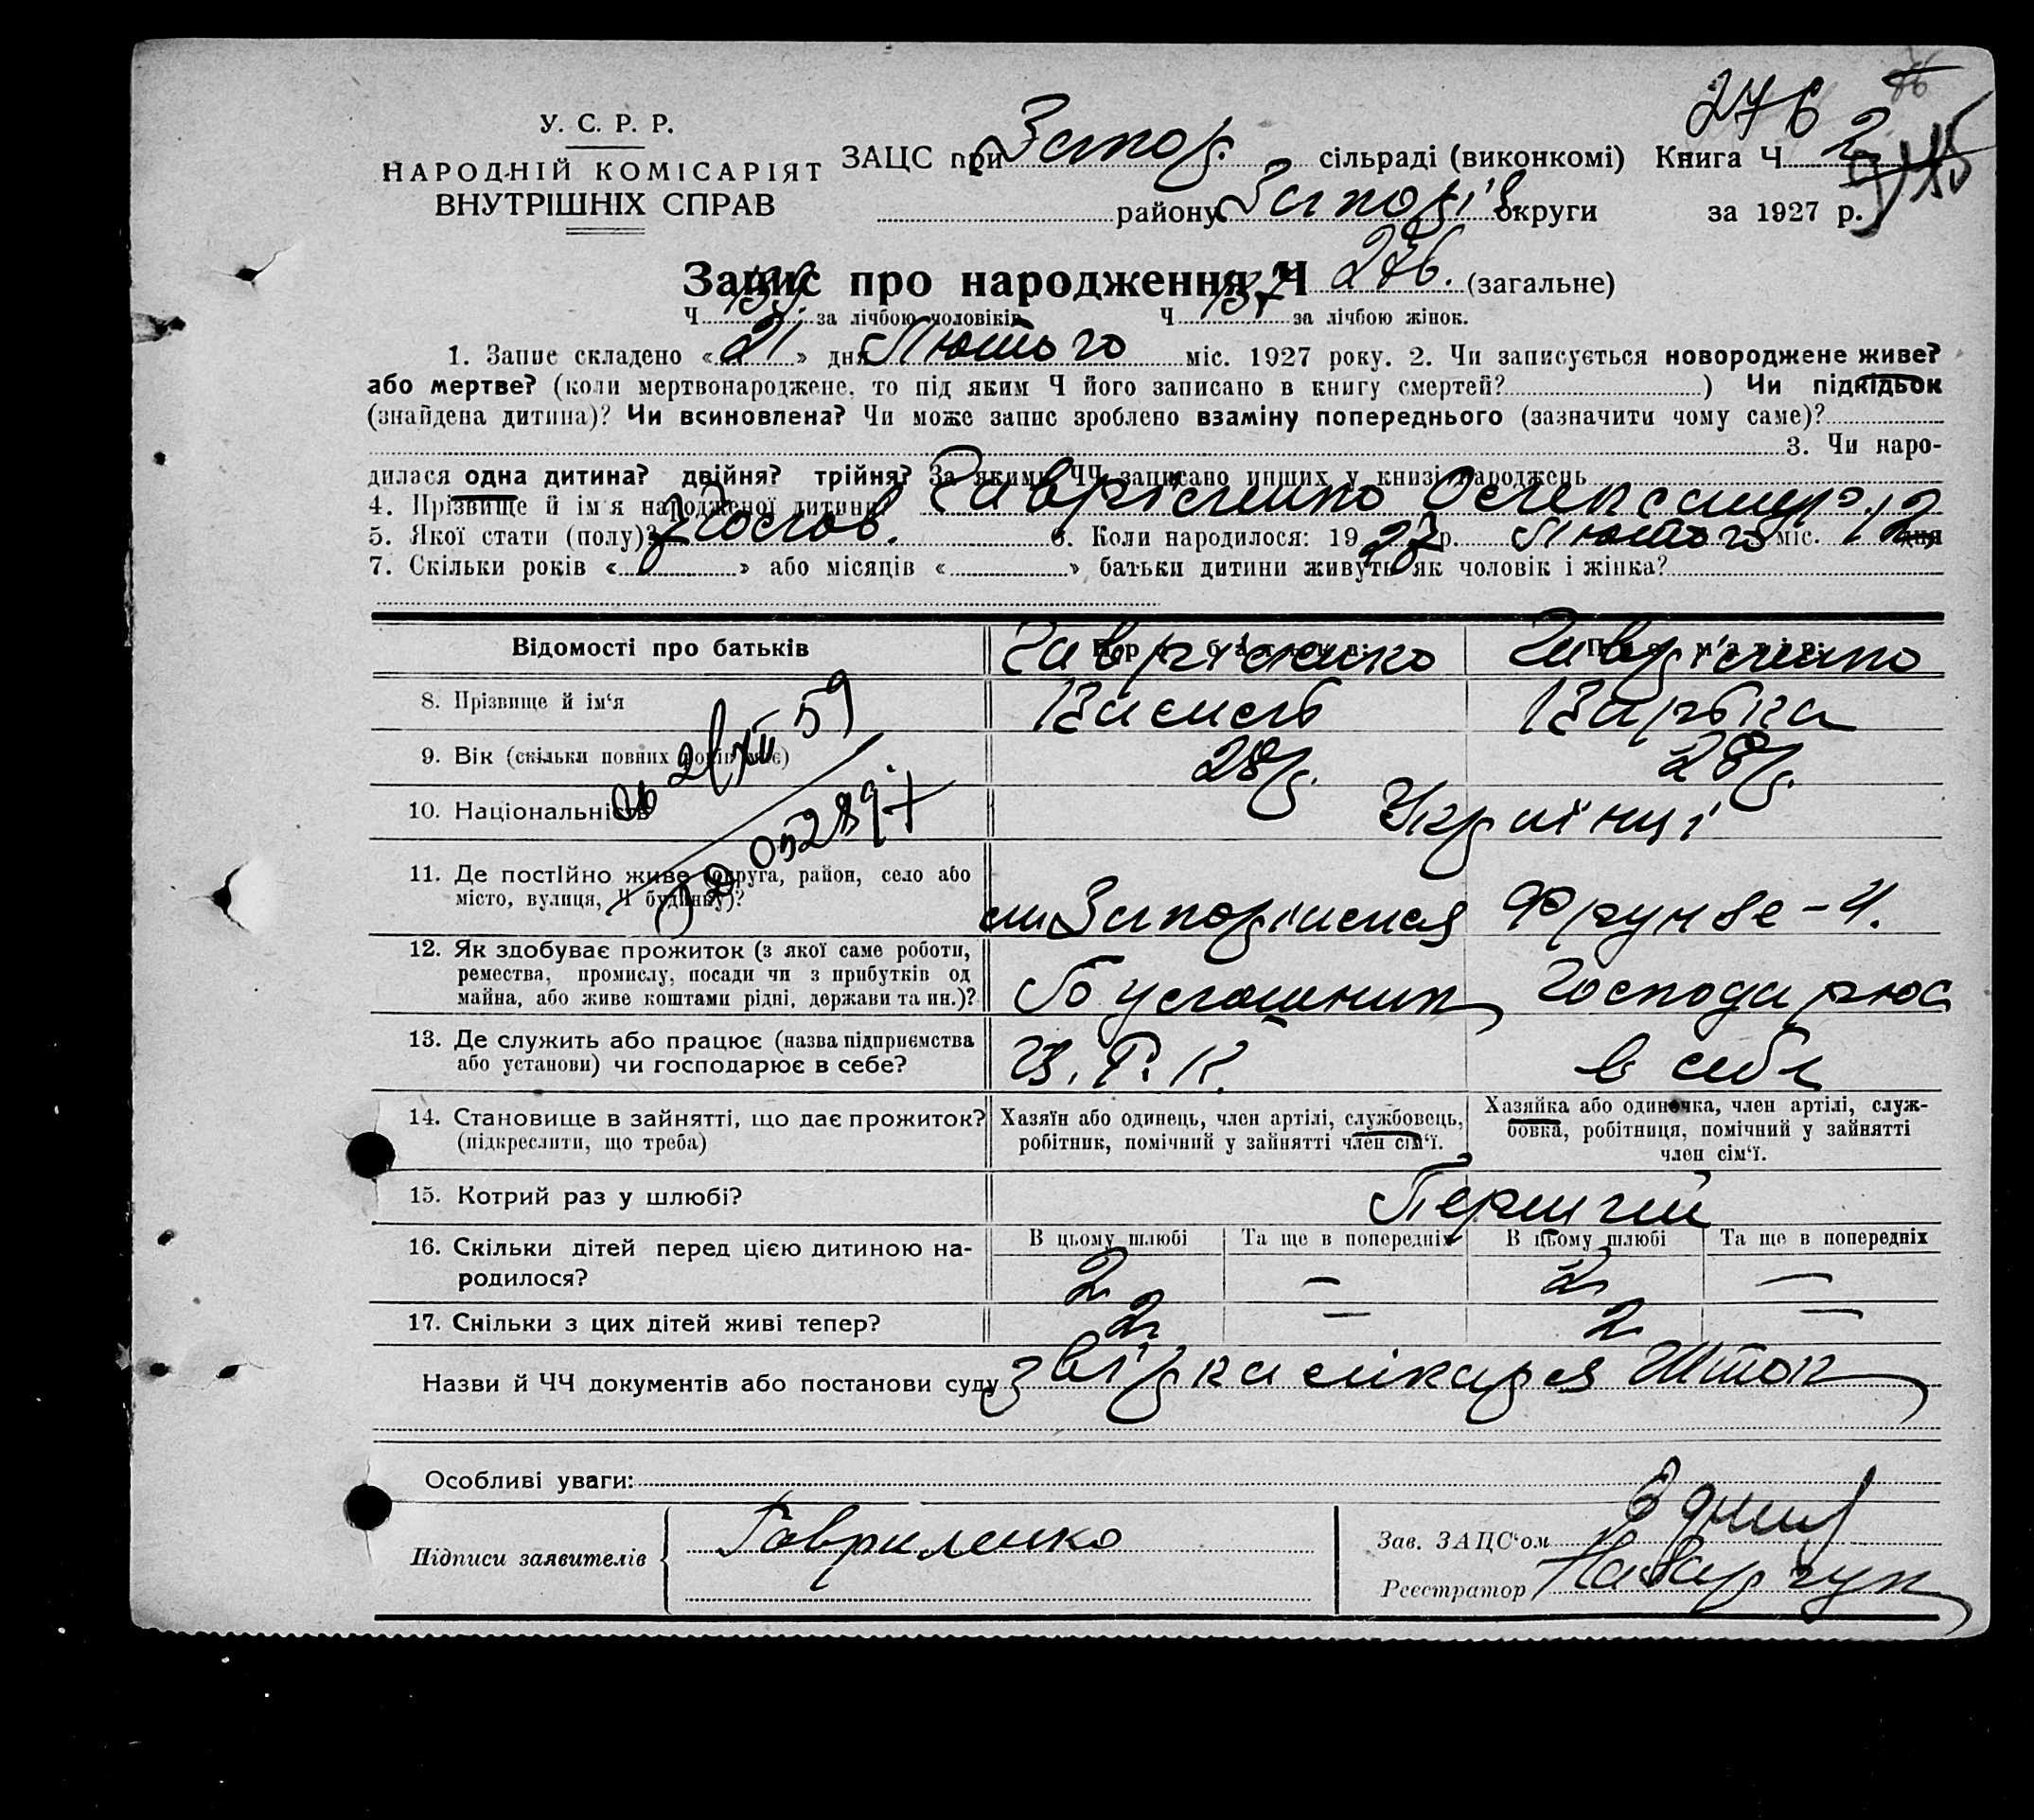 276
У. С. Р. Р.
НАРОДНІЙ КОМІСАРІЯТ
ВНУТРІШНІХ СПРАВ
ЗАЦС при Запор. сільраді (виконкомі) Книга Ч. 2
району Запоріз. округи за 1927 р.
Запис про народження Ч 276. (загальне)
Ч. 139. за лічбою чоловіків Ч. 137 за лічбою жінок.
1. Запис складено « 21 » дня Лютого міс. 1927 року. 2. Чи записується новороджене живе?
або мертве? (коли мертвонароджене, то під яким Ч його записано в книгу смертей?) Чи підкідьок
(знайдена дитина)? Чи всиновлена? Чи може запис зроблено взаміну попереднього (зазначити чому саме)?
3. Чи наро-
дилася одна дитина? двійня? трійня? За якими ЧЧ записано инших у книзі народжень
4. Прізвище й ім'я народженої дитини? Гавріленко Олександр.
5. Якої стати (полу)? Чолов. 6. Коли народилося: 1927 р. Лютого міс. 12 дня
7. Скільки років « » або місяців « » батьки дитини живуть як чоловік і жінка?
Відомості про батьків Про батька: Про матір:
Гавріленко Гавріленко
8. Прізвище й ім'я Василь Варвка
9. Вік (скільки повних років має) 28 р. 28 р.
10. Національність Українці
11. Де постійно живе (округа, район, село або
місто, вулиця, Ч будинку)?
м Запоріжжя Фрунзе-4.
12. Як здобуває прожиток (з якої саме роботи,
ремества, промислу, посади чи з прибутків од
майна, або живе коштами рідні, держави та ин.)?
Господарює
13. Де служить або працює (назва підприємства
або установи) чи господарює в себе?
в себе
14. Становище в зайнятті, що дає прожиток?
(підкреслити, що треба)
Хазяїн або одинець, член артілі, службовець,
робітник, помічний у зайнятті член сім'ї.
Хазяйка або одиначка, член артілі, служ-
бовка, робітниця, помічний у зайнятті
член сім'ї.
15. Котрий раз у шлюбі? Перший
16. Скільки дітей перед цією дитиною на-
родилося?
В цьому шлюбі Та ще в попередніх В цьому шлюбі Та ще в попередніх
2 — 2 —
17. Скільки з цих дітей живі тепер? 2 — 2 —
Назви й ЧЧ документів або постанови суду звірка лікаря Шток
Особливі уваги:
Підписи заявителів Гавриленко
Зав. ЗАЦС'ом
Реєстратор Назарчук